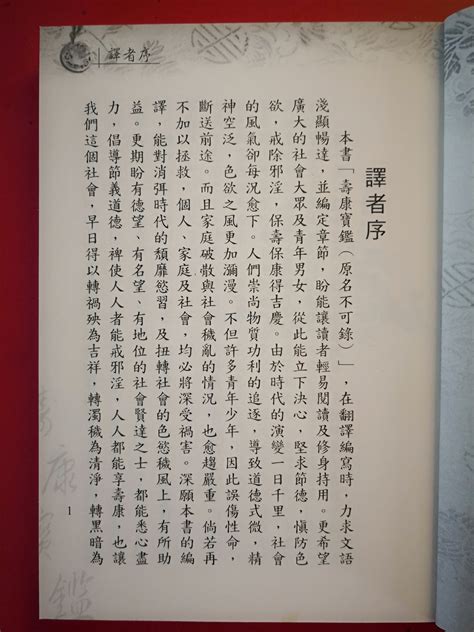 譯者序
譯者序
本書「壽康寶鑑(原名不可錄)」,在翻譯編寫時,力求文語
淺顯暢達,並編定章節,盼能讓讀者輕易閱讀及修身持用。更希望
廣大的社會大眾及青年男女,從此能立下決心,堅求節德,慎防色
欲,戒除邪淫,保壽保康得吉慶。由於時代的演變一日千里,社會
的風氣卻每況愈下。人們崇尚物質功利的追逐,導致道德式微,精
神空泛,色欲之風更加瀰漫。不但許多青年少年,因此誤傷性命,
斷送前途。而且家庭破散與社會穢亂的情況,也愈趨嚴重。倘若再
不加以拯救,個人、家庭及社會,均必將深受禍害。深願本書的編
譯,能對消弭時代的頹靡慾習,及扭轉社會的色慾穢風上,有所助
益。更期盼有德望、有名望、有地位的社會賢達之士,都能悉心盡
力,倡導節義道德,裨使人人者能戒邪淫,人人都能享壽康,也讓
我們這個社會,早日得以轉禍殃為吉祥,轉濁穢為清淨,轉黑暗為
1
壽康寶鑑